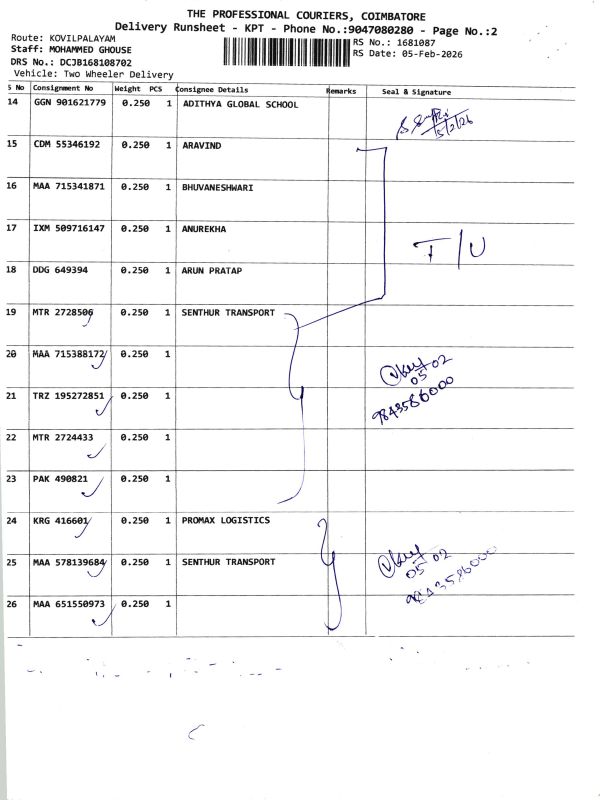 THE PROFESSIONAL COURIERS, COIMBATORE
Delivery Runsheet - KPT - Phone No.:9047080280 - Page No.:2
Route: KOVILPALAYAM
Staff: MOHAMMED GHOUSE
DRS No.: DCJB168108702
Vehicle: Two Wheeler Delivery
RS No.: 1681087
RS Date: 05-Feb-2026
S No Consignment No Weight PCS Consignee Details Remarks Seal & Signature
14 GGN 901621779 0.250 1 ADITHYA GLOBAL SCHOOL
5/2/26
15 CDM 55346192 0.250 1 ARAVIND
16 MAA 715341871 0.250 1 BHUVANESHWARI
17 IXM 509716147 0.250 1 ANUREKHA
T/U
18 DDG 649394 0.250 1 ARUN PRATAP
19 MTR 2728506 0.250 1 SENTHUR TRANSPORT
20 MAA 715388172 0.250 1
05 02
9843586000
21 TRZ 195272851 0.250 1
22 MTR 2724433 0.250 1
23 PAK 490821 0.250 1
24 KRG 416601 0.250 1 PROMAX LOGISTICS
25 MAA 578139684 0.250 1 SENTHUR TRANSPORT
05 02
9843586000
26 MAA 651550973 0.250 1